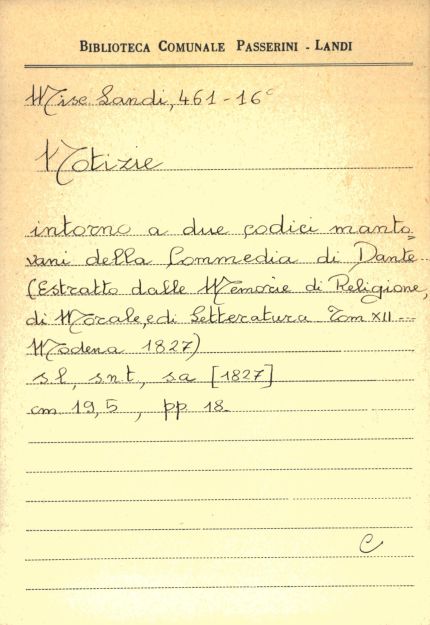 BIBLIOTECA COMUNALE PASSERINI - LANDI
Misc. Landi, 461-16°
Notizie
intorno a due codici manto=
vani della Commedia di Dante
(Estratto dalle Memorie di Religione,
di Morale, e di Letteratura Tom XII --
Modena 1827)
s.l., s.n.t., s.a. [1827]
cm 19,5, pp 18.
C